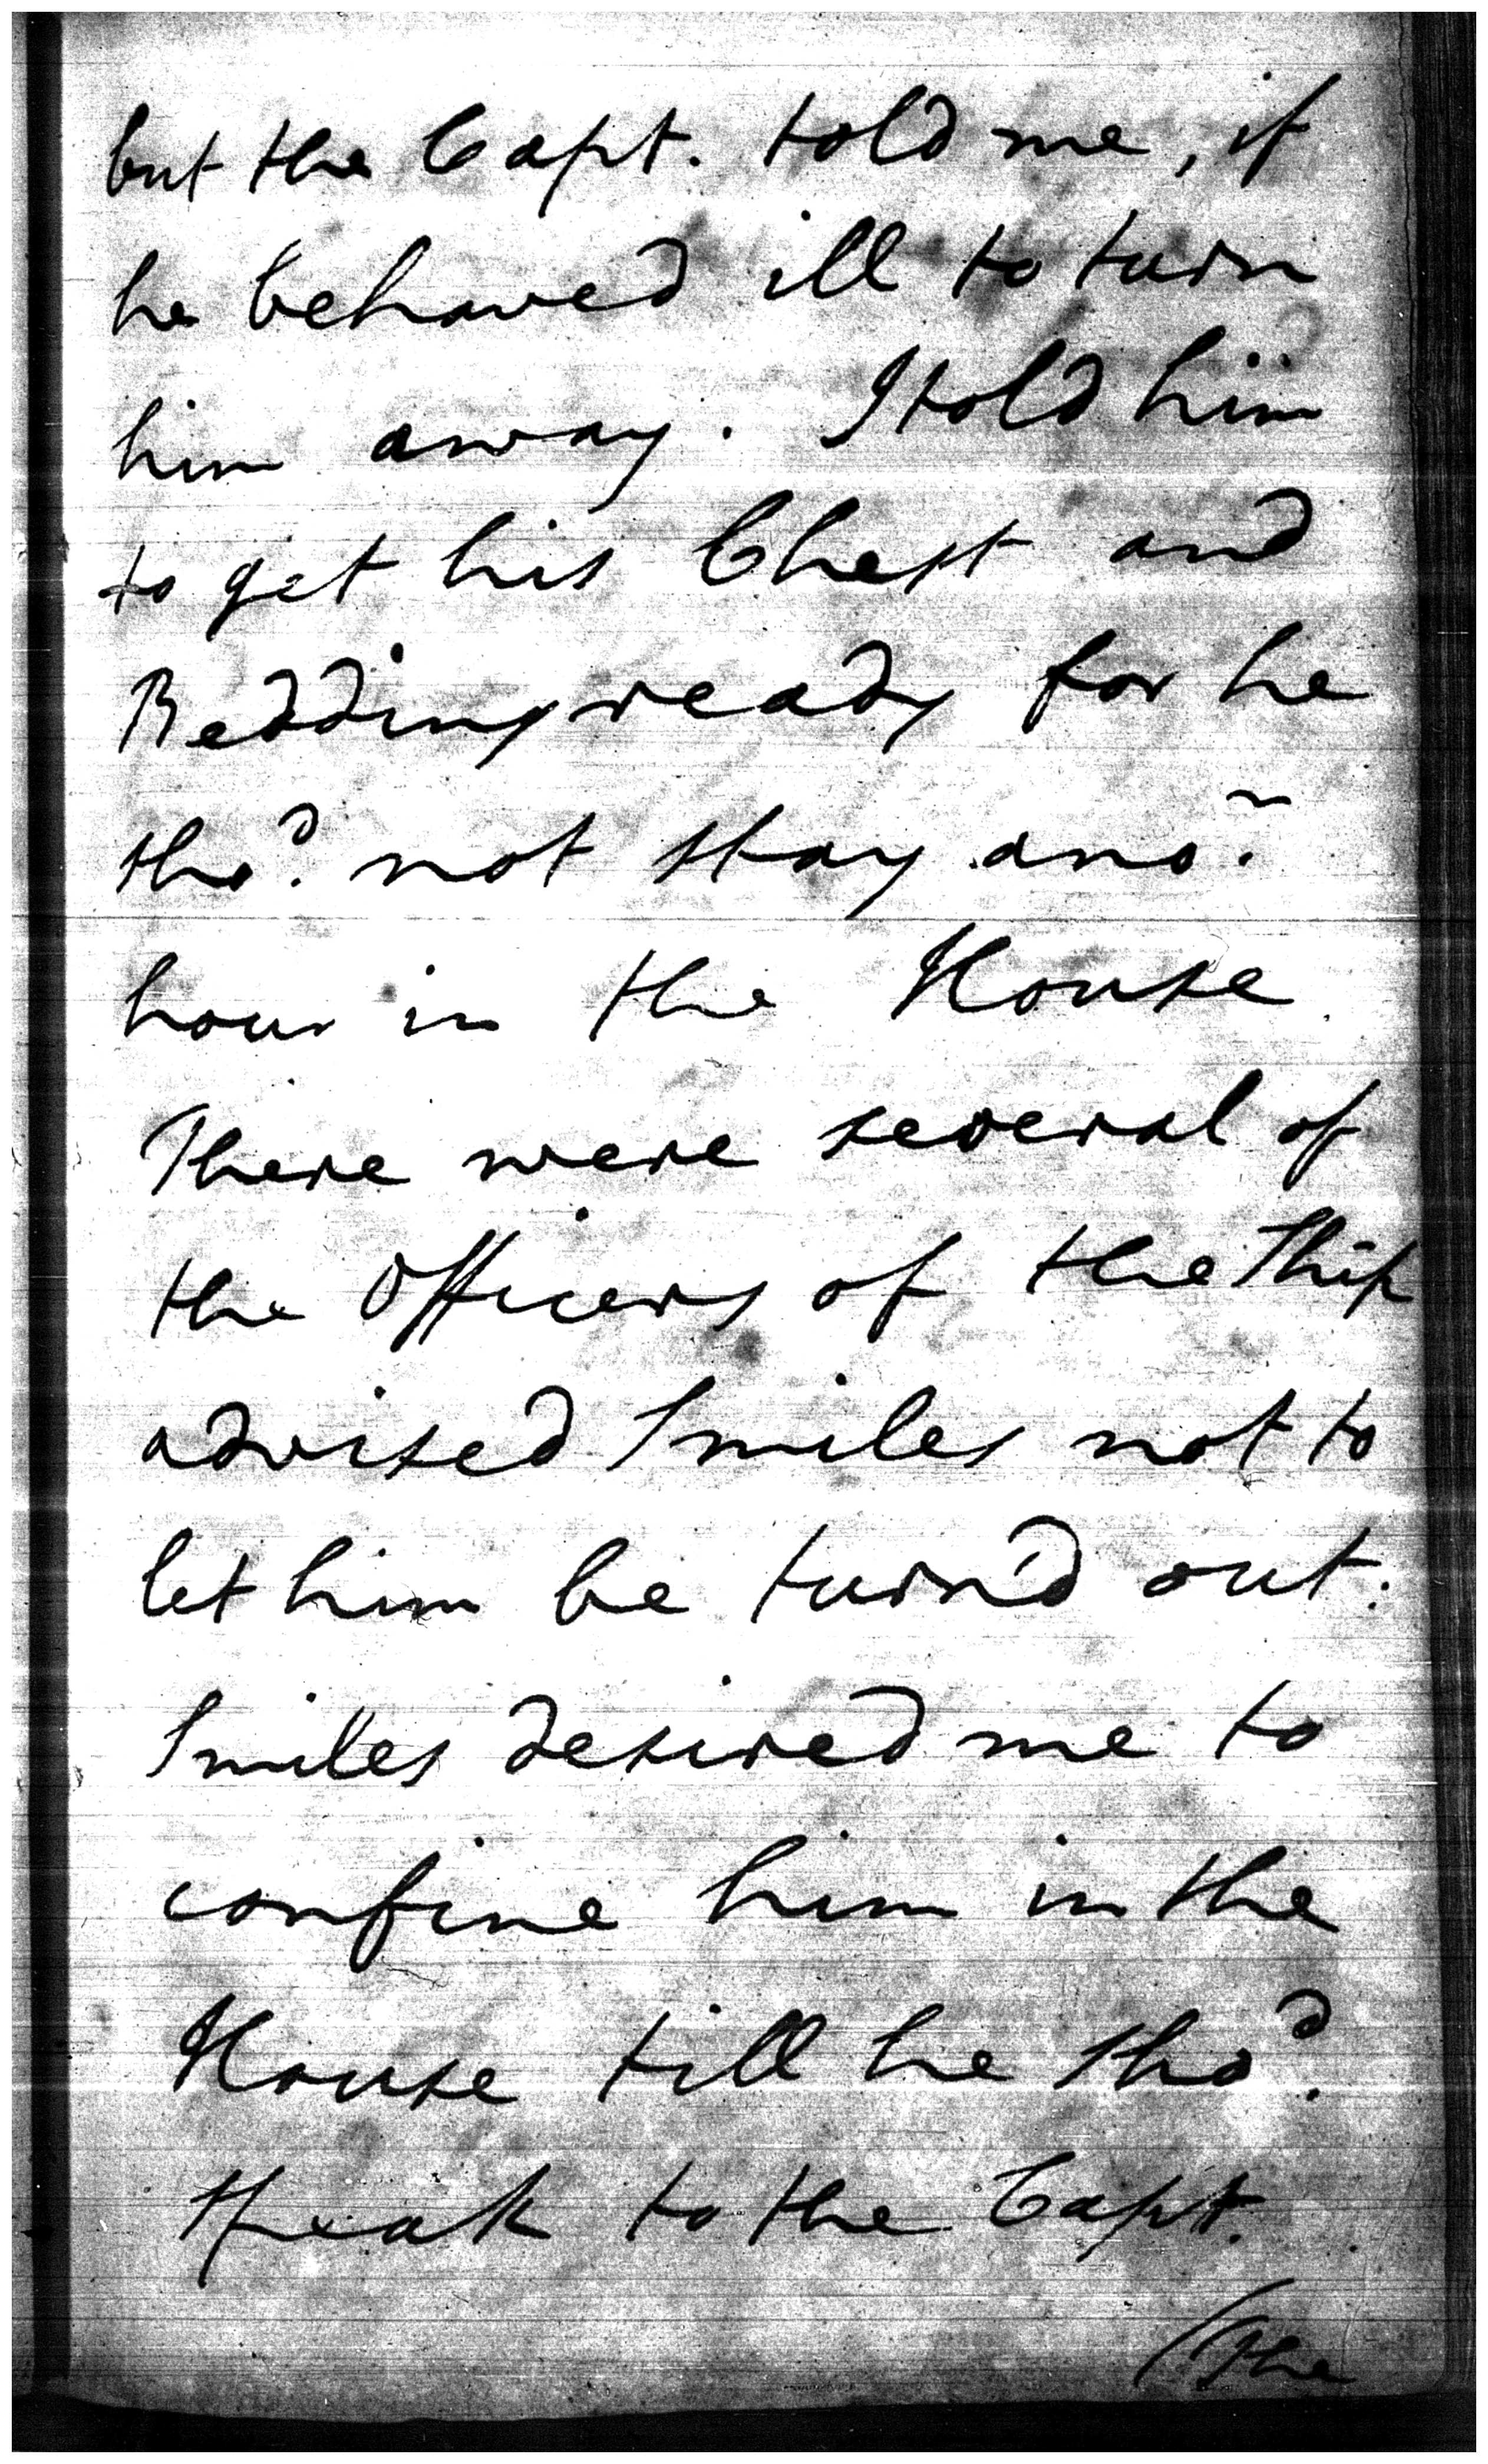 but the Capt. told me, if
he behaved ill to turn
him away. I told him
to get his Chest and
Bedding ready for he
sho.d not stay ano.r
hour in the House.
There were several of
the Officers of the Ship
advised Smiles not to
let him be turn'd out.
Smiles desired me to
confine him in the
House till he sho.d
speak to the Capt.
(The